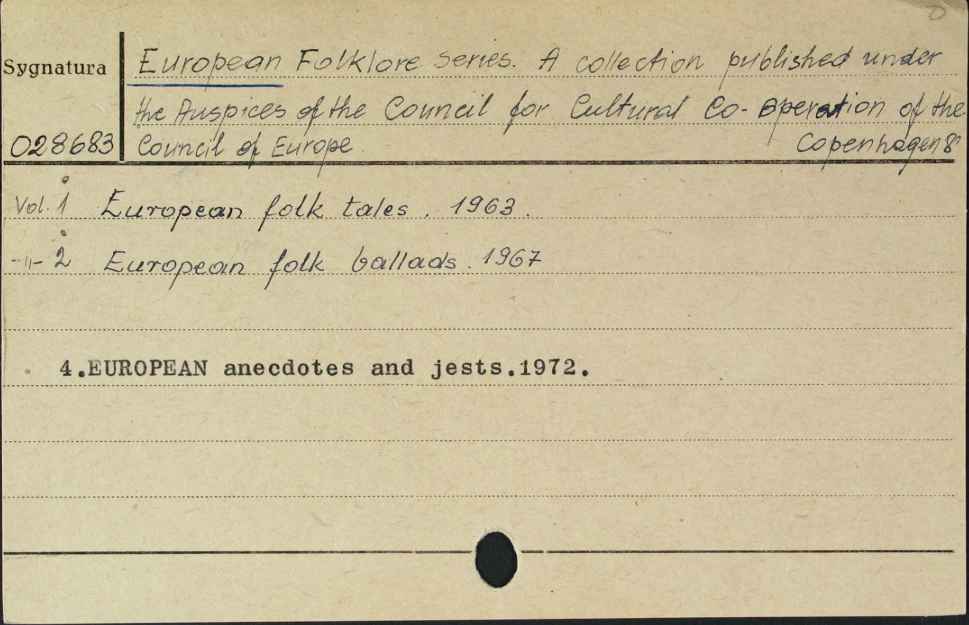 Sygnatura European Folklore series. A collection published under
the Auspices of the Council for Cultural Co-operation of the
028683 Council of Europe. Copenhagen 8°
Vol. 1 European folk tales. 1963.
-"- 2 European folk ballads. 1967
4.EUROPEAN anecdotes and jests.1972.